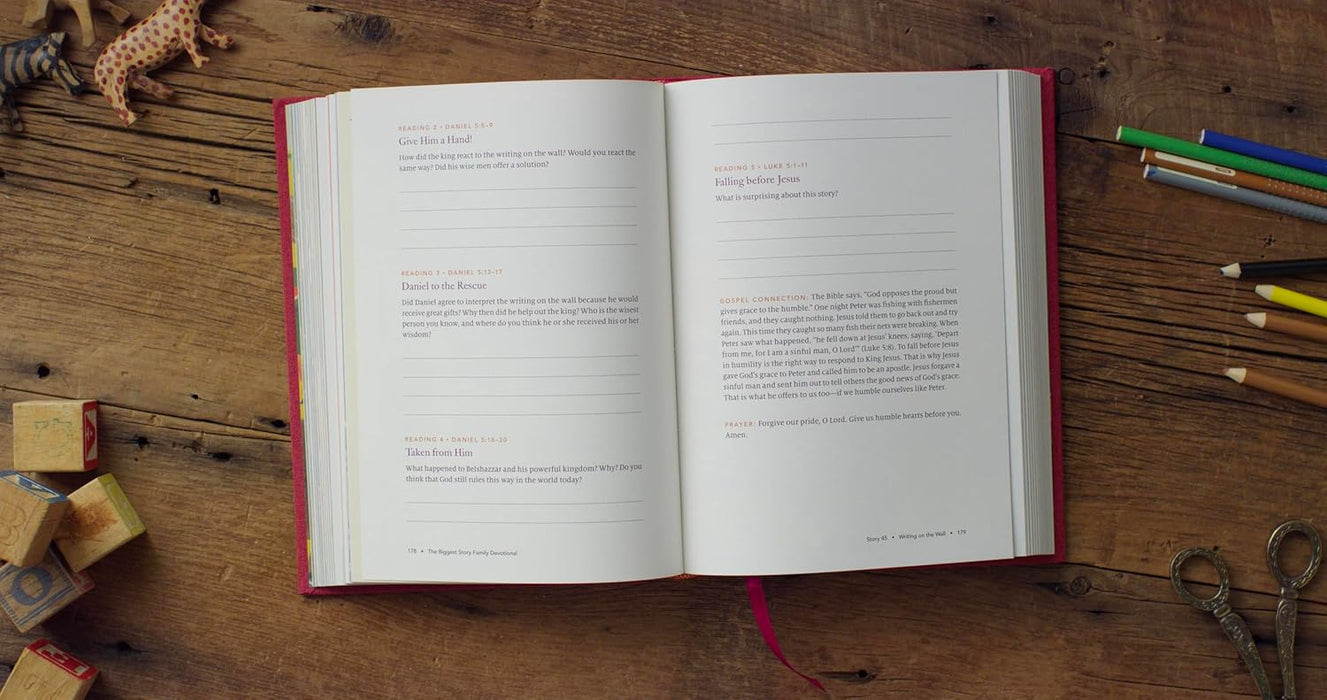 READING 2 • DANIEL 5:5–9
Give Him a Hand!
How did the king react to the writing on the wall? Would you react the
same way? Did his wise men offer a solution?
READING 3 • DANIEL 5:13–17
Daniel to the Rescue
Did Daniel agree to interpret the writing on the wall because he would
receive great gifts? Why then did he help out the king? Who is the wisest
person you know, and where do you think he or she received his or her
wisdom?
READING 4 • DANIEL 5:18–30
Taken from Him
What happened to Belshazzar and his powerful kingdom? Why? Do you
think that God still rules this way in the world today?
178 • The Biggest Story Family Devotional
READING 5 • LUKE 5:1–11
Falling before Jesus
What is surprising about this story?
GOSPEL CONNECTION: The Bible says, “God opposes the proud but
gives grace to the humble.” One night Peter was fishing with fishermen
friends, and they caught nothing. Jesus told them to go back out and try
again. This time they caught so many fish their nets were breaking. When
Peter saw what happened, “he fell down at Jesus’ knees, saying, ‘Depart
from me, for I am a sinful man, O Lord’” (Luke 5:8). To fall before Jesus
in humility is the right way to respond to King Jesus. That is why Jesus
gave God’s grace to Peter and called him to be an apostle. Jesus forgave a
sinful man and sent him out to tell others the good news of God’s grace.
That is what he offers to us too—if we humble ourselves like Peter.
PRAYER: Forgive our pride, O Lord. Give us humble hearts before you.
Amen.
Story 45 • Writing on the Wall • 179